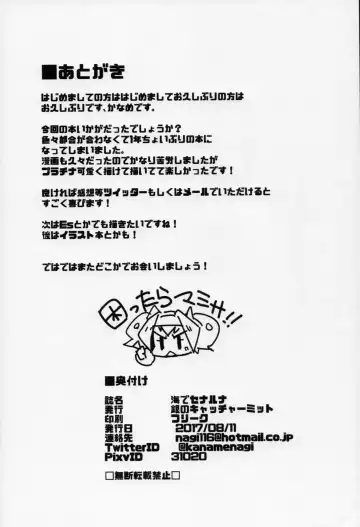 ■あとがき
はじめましての方ははじめましてお久しぶりの方は
お久しぶりです、かなめです。
今回の本いかがだったでしょうか？
色々都合が合わなくて1年ちょいぶりの本に
なってしまいました。
漫画も久々だったのでかなり苦労しましたが
プラチナ可愛く描けて描いてて楽しかったです！
良ければ感想等ツイッターもしくはメールでいただけると
すごく喜びます！
次はEsとかでも描きたいですね！
後はイラスト本とかも！
ではではまたどこかでお会いしましょう！
困ったらマミサ!!
■奥付け
誌名 海でセナルナ
発行 銀のキャッチャーミット
印刷 フリーク
発行日 2017/08/11
連絡先 nagi116@hotmail.co.jp
TwitterID @kanamenagi
PixvID 31020
□無断転載禁止□